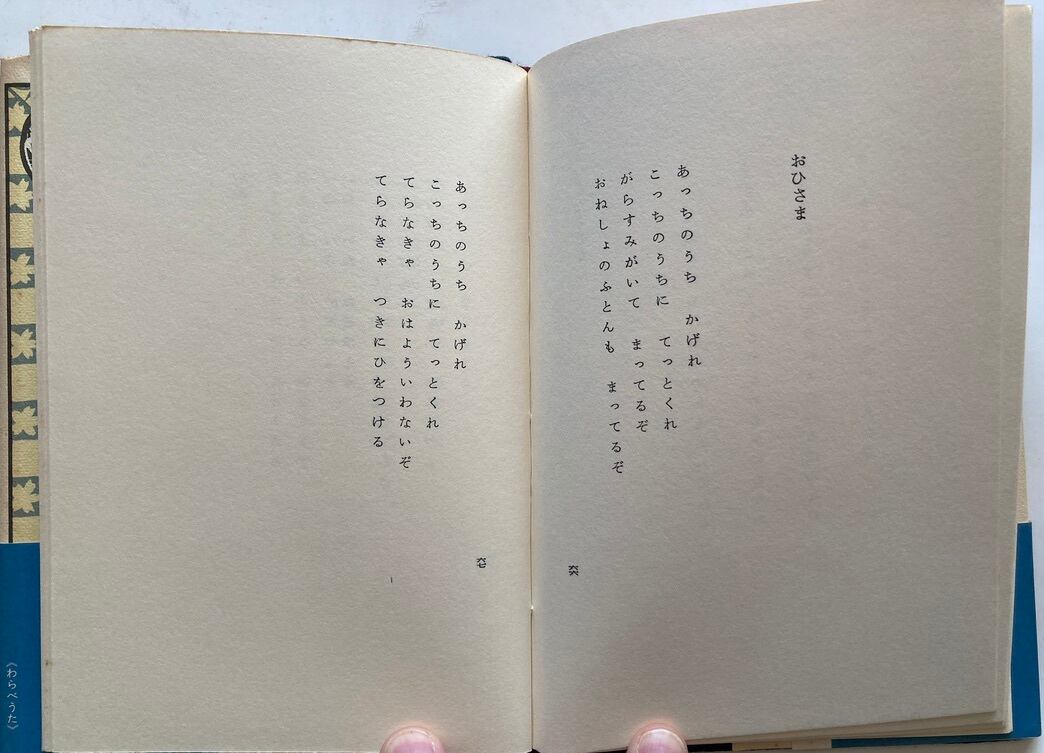 おひさま
あっちのうち　かげれ
こっちのうちに　てっとくれ
がらすみがいて　まってるぞ
おねしょのふとんも　まってるぞ
六六
あっちのうち　かげれ
こっちのうちに　てっとくれ
てらなきゃ　おはよういわないぞ
てらなきゃ　つきにひをつける
六七
《わらべうた》